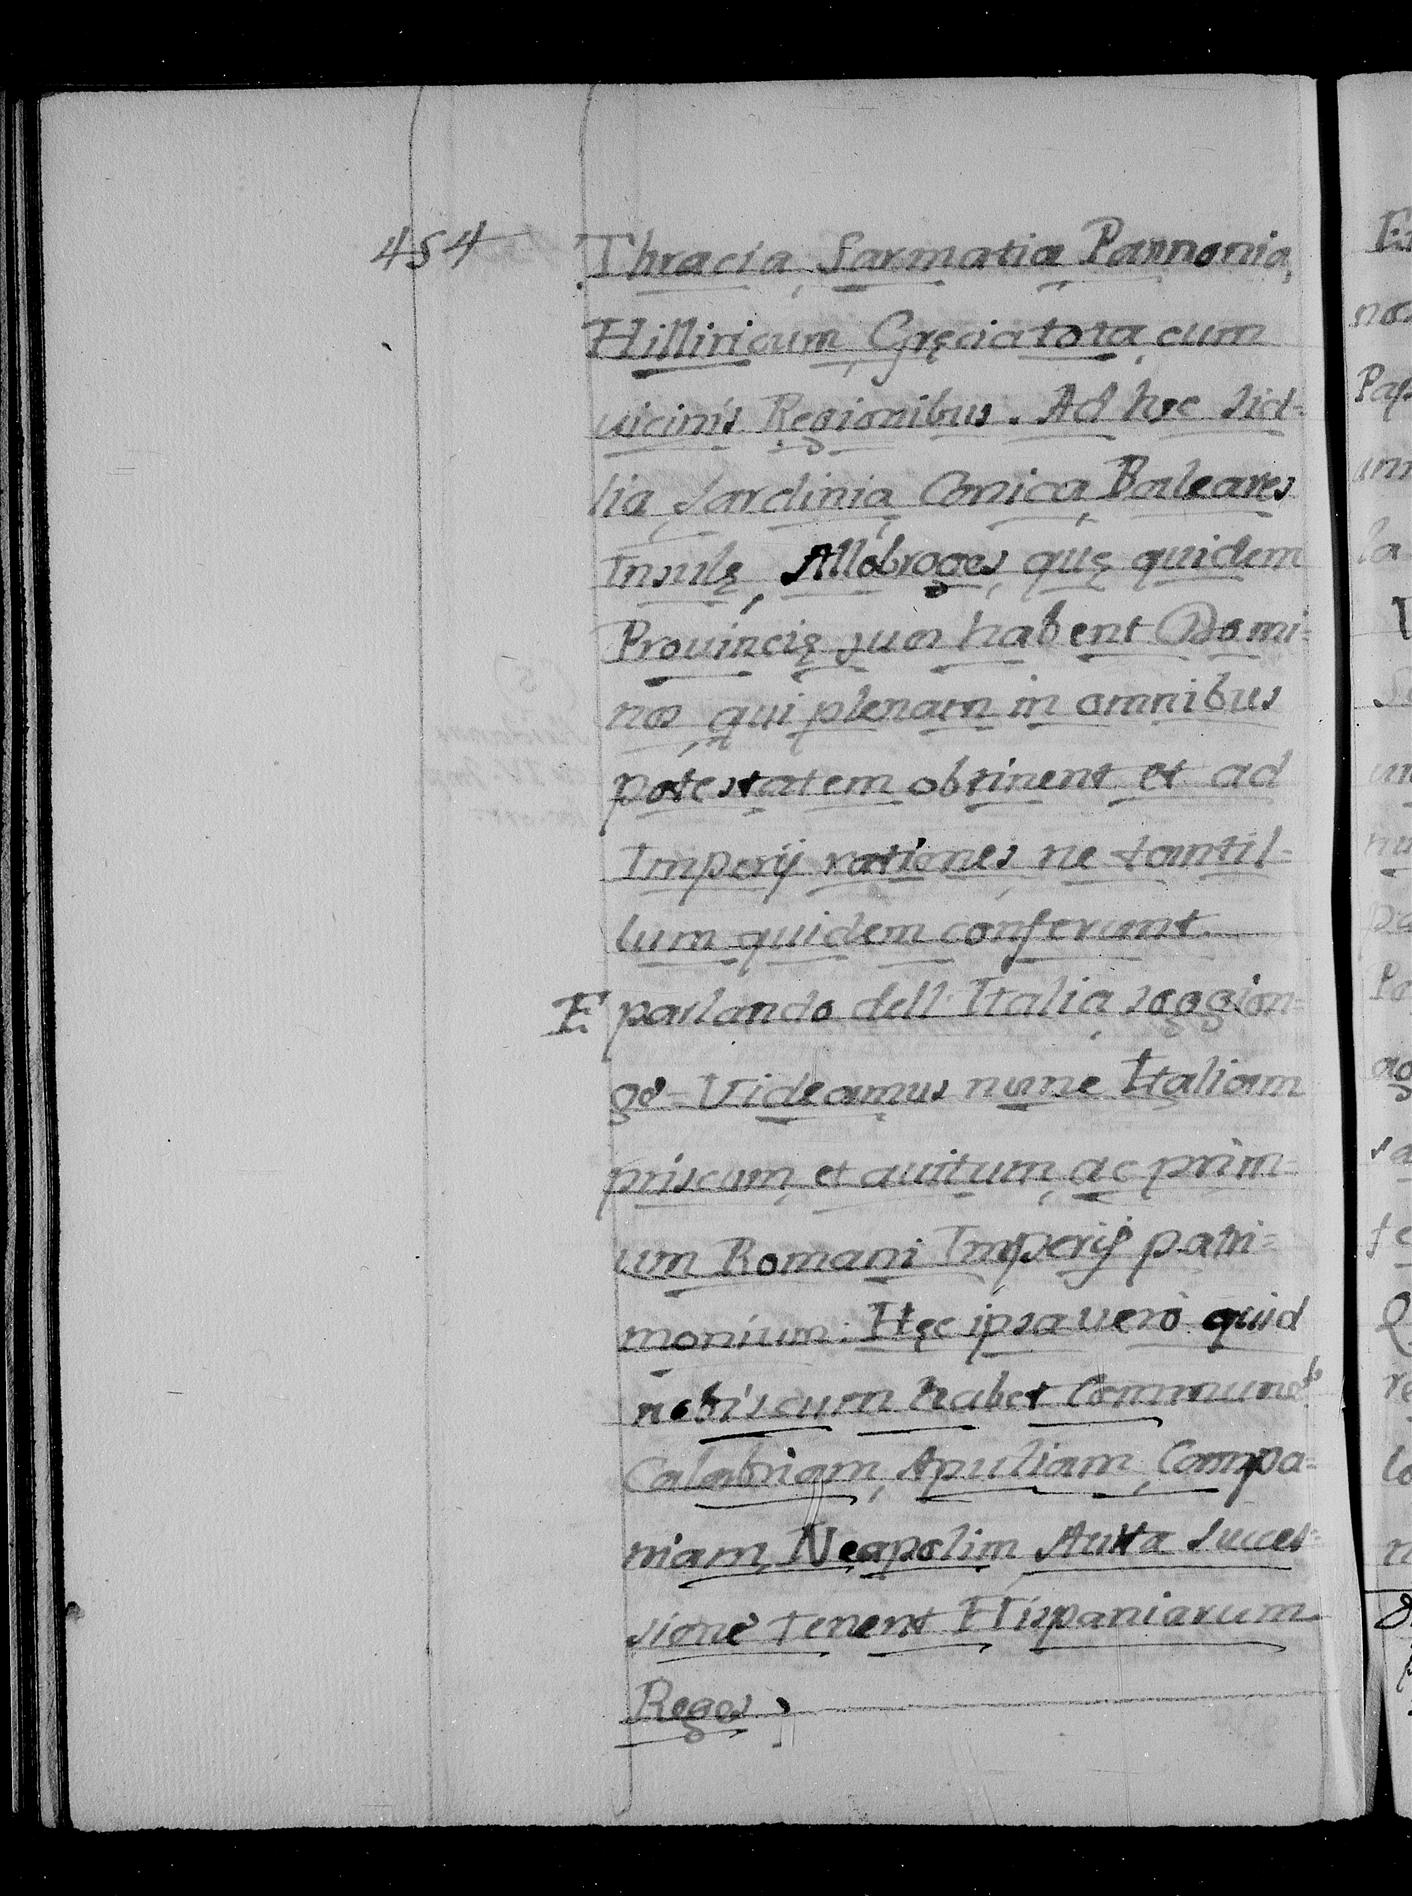 454
Thracia, Sarmatia Pannonia,
Hilliricum, Gręcia tota, cum
uicinis Regionibus. Ad hęc Sici=
lia, Sardinia, Corsica, Baleares
Insulę, Allobroges, quę quidem
Prouincię suos habent Domi=
nos, qui plenam in omnibus
potestatem obtinent et ad
Imperij rationes, ne tantil=
lum quidem conferunt.
E parlando dell' Italia, soggion=
ge = Videamus nunc Italiam
priscum, et auitum, ac prim=
um Romani Imperij patri=
monium: Hęc ipsa uerò quid
nobiscum habet Commune?
Calabriam, Apuliam, Campa=
niam, Neapolim Auita Succes=
sione tenent Hispaniarum
Reges;